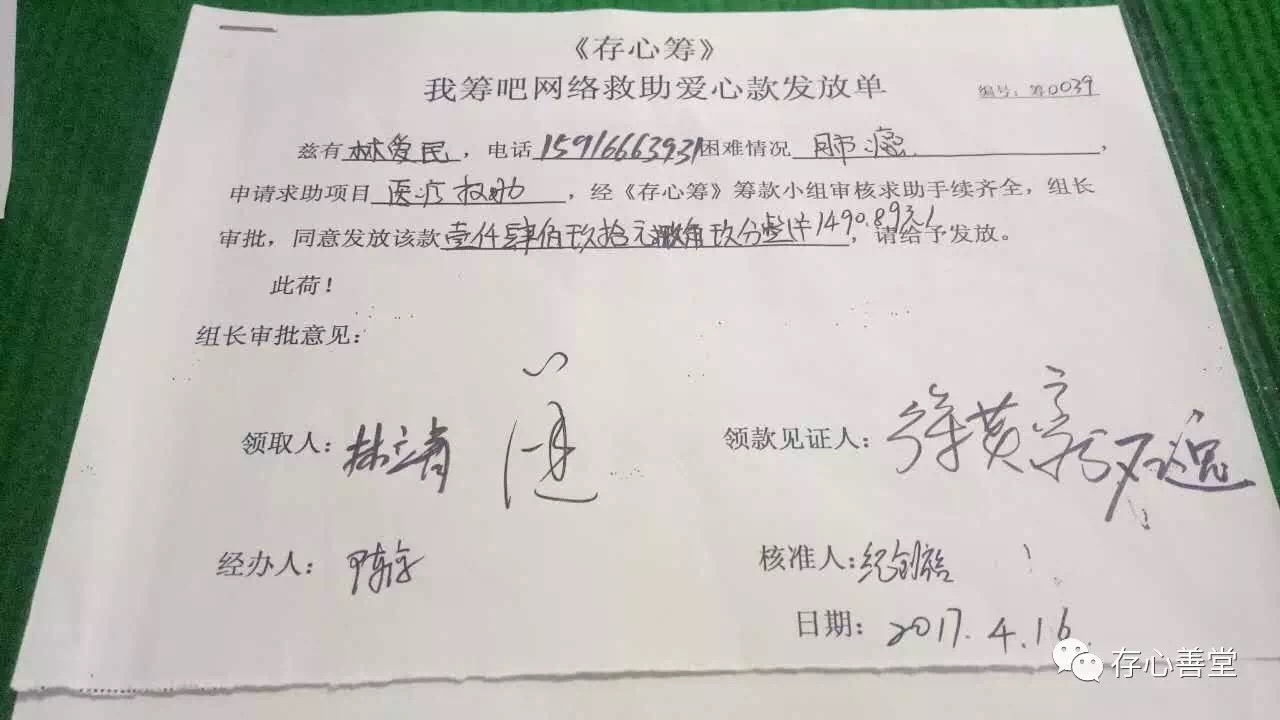 《存心筹》
我筹吧网络救助爱心款发放单
编号：筹0039
兹有林爱民，电话15916663931困难情况肺癌，
申请求助项目医疗救助，经《存心筹》筹款小组审核求助手续齐全，组长
审批，同意发放该款壹仟肆佰玖拾元捌角玖分整(¥1490.89元)，请给予发放。
此荷！
组长审批意见：
领取人：林立青
领款见证人：徐黄
经办人：
核准人：纪创
日期：2017.4.16
存心善堂